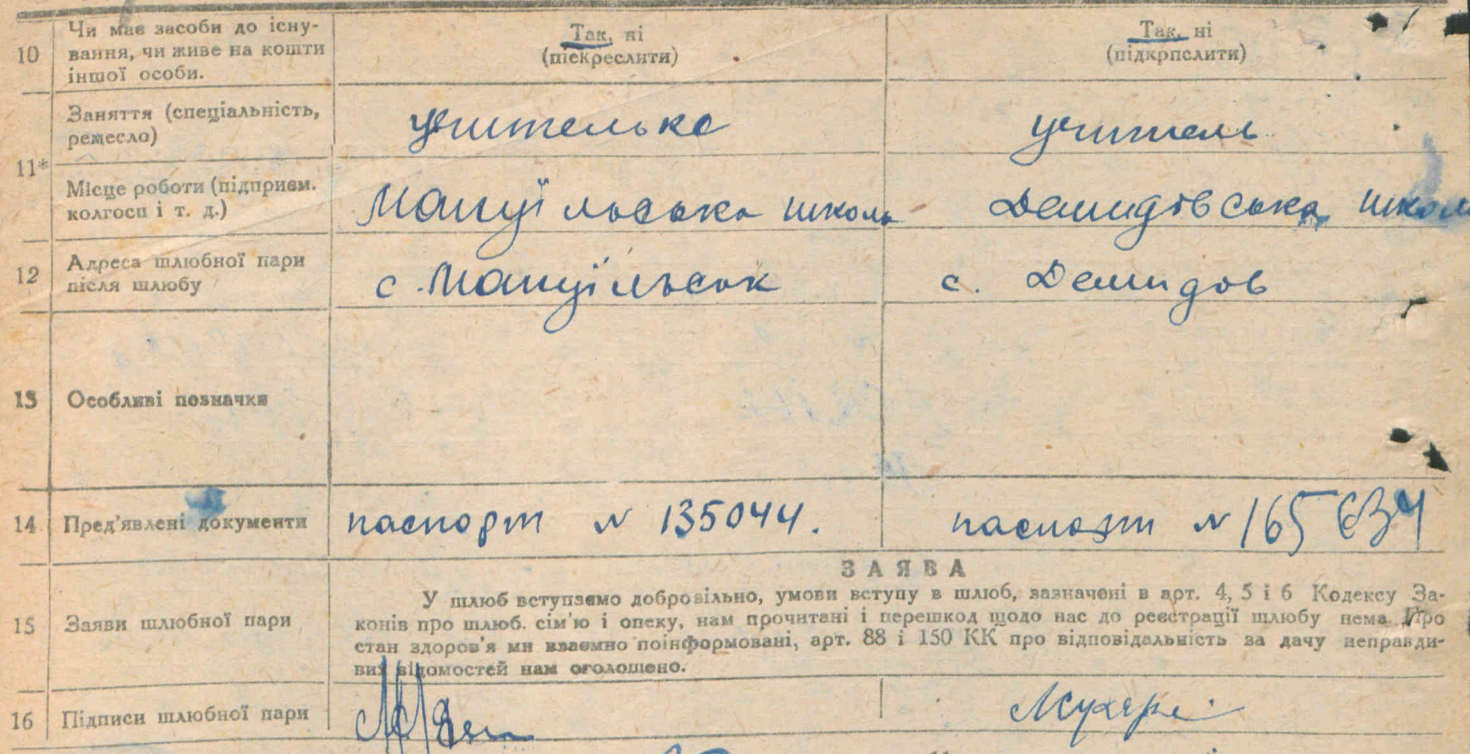 10 Чи має засоби до існу-
вання, чи живе на кошти
іншої особи.
Так, ні
(підкреслити)
Так, ні
(підкрпслити)
11*
Заняття (спеціальність,
ремесло)
учителька
учитель
Місце роботи (підприєм.
колгосп і т. д.)
Мануїльська школа
Демидівська школа
12 Адреса шлюбної пари
після шлюбу
с. Мануїльськ
с. Демидов
13 Особливі позначки
14 Пред'явлені документи
паспорт N 135044.
паспорт N 165
ЗАЯВА
15 Заяви шлюбної пари
У шлюб вступаємо добровільно, умови вступу в шлюб, зазначені в арт. 4, 5 і 6 Кодексу За-
конів про шлюб. сім'ю і опеку, нам прочитані і перешкод щодо нас до реєстрації шлюбу нема. Про
стан здоров'я ми взаємно поінформовані, арт. 88 і 150 КК про відповідальність за дачу неправди-
вих відомостей нам оголошено.
16 Підписи шлюбної пари